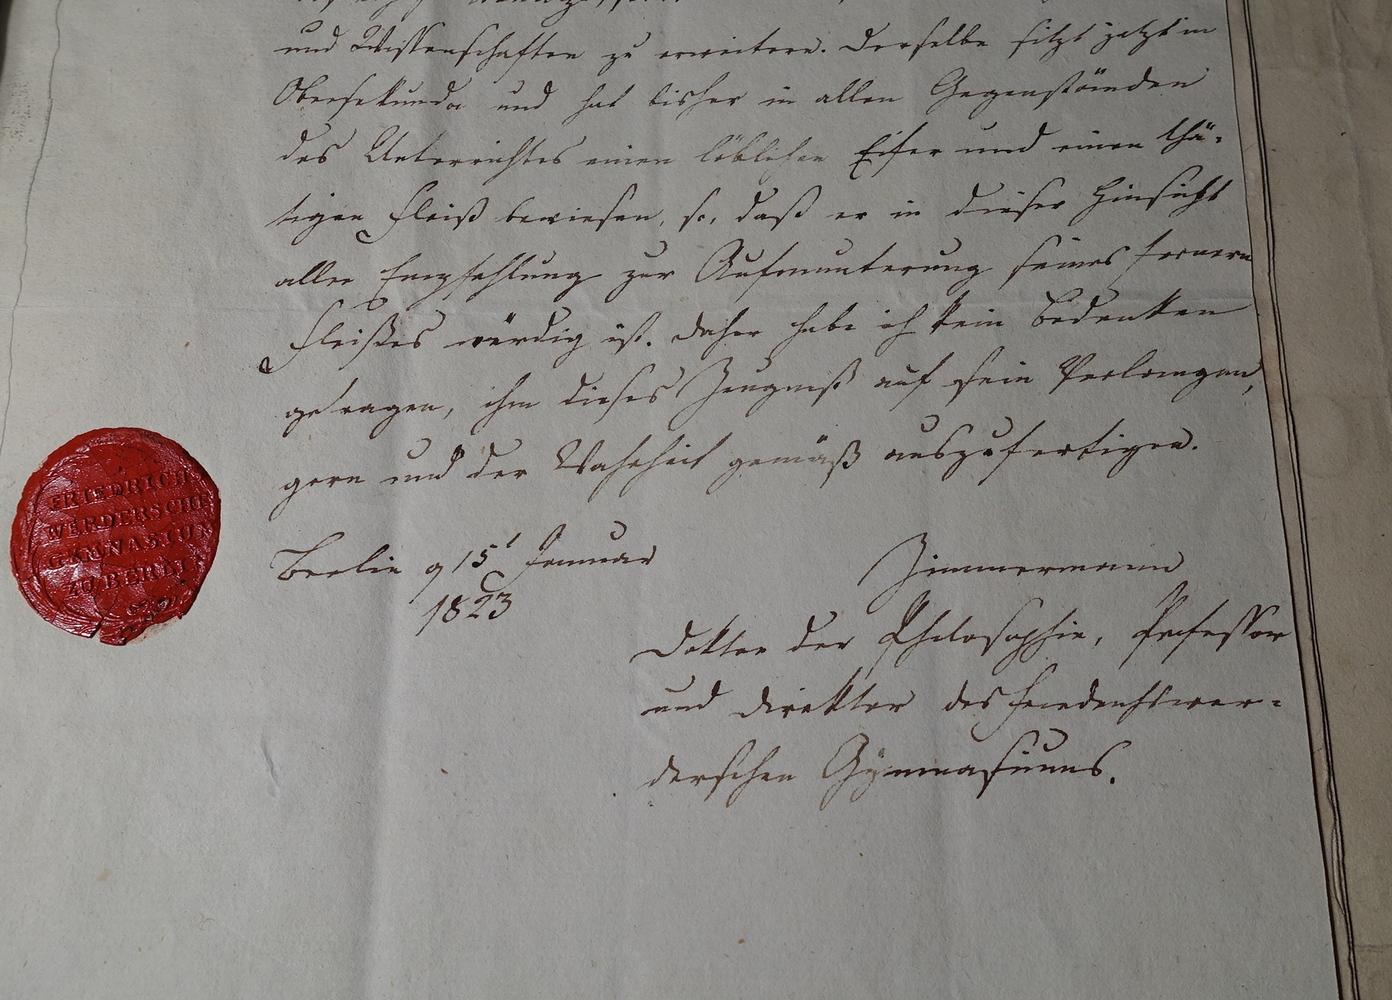 und Wissenschaften zu erweitern. Derselbe sitzt jetzt in
Obersekunda und hat bisher in allen Gegenständen
des Unterrichtes einen löblichen Eifer und einen thä-
tigen Fleiß bewiesen, so, daß er in dieser Hinsicht
aller Empfehlung zur Aufmunterung seines fernern
Fleißes würdig ist. Daher habe ich kein Bedenken
getragen, ihm dieses Zeugniß auf sein Verlangen,
gern und der Wahrheit gemäß auszufertigen.
Berlin 15t Januar
1823
Zimmermann
Doktor der Philosophie, Professor
und Direktor des Friedrichswer-
derschen Gymnasiums.
FRIEDRICHS
WERDERSCHES
GYMNASIUM
ZU BERLIN